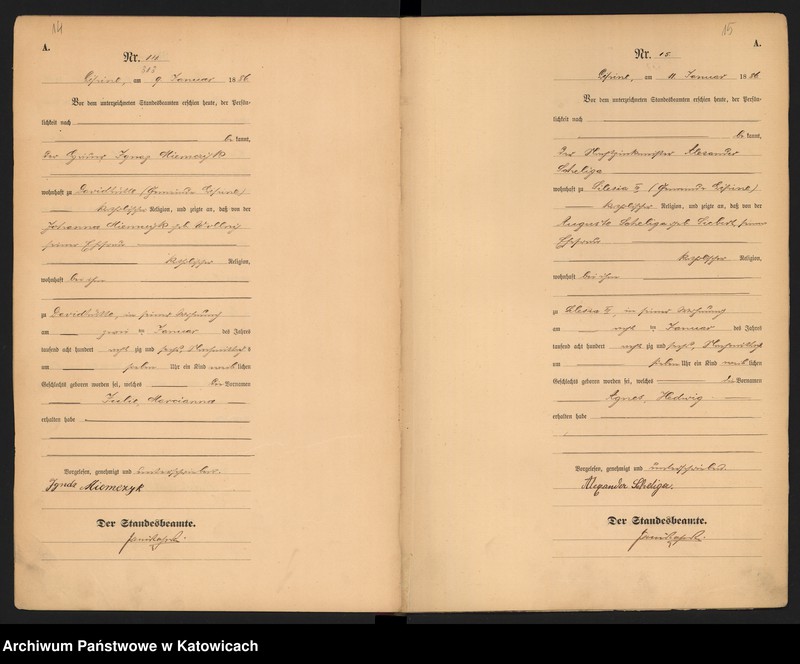 14
A.
Nr. 14
313
Lipine, am 9 Januar 1886
Vor dem unterzeichneten Standesbeamten erschien heute, der Persön-
lichkeit nach
be kannt,
der
Ignaz Niemczyk
wohnhaft zu Davidhütte (Gemeinde Lipine)
katholischer Religion, und zeigte an, daß von der
Johanna Niemczyk geb.
seiner Ehefrau
katholischer Religion,
wohnhaft bei ihm
zu Davidhütte, in seiner Wohnung
am zwei ten Januar des Jahres
tausend acht hundert acht zig und sechs, Nachmittags
um sieben Uhr ein Kind weib lichen
Geschlechts geboren worden sei, welches die Vornamen
Julie, Marianna
erhalten habe
Vorgelesen, genehmigt und unterschrieben.
Ignatz Niemczyk
Der Standesbeamte.
15
A.
Nr. 15
Lipine, am 11 Januar 1886
Vor dem unterzeichneten Standesbeamten erschien heute, der Persön-
lichkeit nach
be kannt,
der Alexander
Scheliga
wohnhaft zu Silesia (Gemeinde Lipine)
katholischer Religion, und zeigte an, daß von der
Augusta Scheliga geb. Siebert, seiner
Ehefrau
katholischer Religion,
wohnhaft bei ihm
zu Silesia, in seiner Wohnung
am acht ten Januar des Jahres
tausend acht hundert acht zig und sechs, Nachmittags
um sieben Uhr ein Kind weib lichen
Geschlechts geboren worden sei, welches die Vornamen
Agnes, Hedwig
erhalten habe
Vorgelesen, genehmigt und unterschrieben.
Alexander Scheliga.
Der Standesbeamte.
Archiwum Państwowe w Katowicach